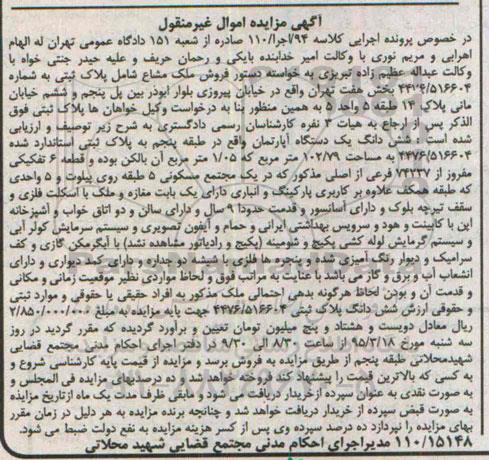 آگهی مزایده اموال غیرمنقول
در خصوص پرونده اجرایی کلاسه ۹۴/اجرا/۱۱۰ صادره از شعبه ۱۵۱ دادگاه عمومی تهران له الهام
اهرابی و مریم نوری با وکالت امیر خدابنده بایکی و رحمان حریف و علیه حیدر جنتی خواه با
وکالت عبداله عظیم زاده تبریزی به خواسته دستور فروش ملک مشاع شامل پلاک ثبتی به شماره
بخش هفت تهران واقع در خیابان پیروزی بلوار ابوذر بین پل پنجم و ششم خیابان
مانی پلاک ۱۴ طبقه ۵ واحد ۵ به همین منظور بنا به درخواست وکیل خواهان ها پلاک ثبتی فوق
الذکر پس از ارجاع به هیات ۳ نفره کارشناسان رسمی دادگستری به شرح زیر توصیف و ارزیابی
شده است : شش دانگ یک دستگاه آپارتمان واقع در طبقه پنجم به پلاک ثبتی استاندارد شده
۴۴۷۶/۵۱۶۶۰۴ به مساحت ۱۰۲/۷۹ متر مربع که ۱/۰۵ متر مربع آن بالکن بوده و قطعه ۶ تفکیکی
مفروز از ۷۴۲۳۷ فرعی از اصلی مذکور که در یک مجتمع مسکونی ۵ طبقه روی پیلوت و ۵ واحدی
که طبقه همکف علاوه بر کاربری پارکینگ و انباری دارای یک بابت مغازه و ملک با اسکلت فلزی و
سقف تیرچه بلوک و دارای آسانسور و قدمت حدودا ۹ سال و دارای سالن و دو اتاق خواب و آشپزخانه
اپن با کابینت و هود و سرویس بهداشتی ایرانی و حمام و آیفون تصویری و سیستم سرمایش کولر آبی
و سیستم گرمایش لوله کشی پکیج و شومینه (پکیج و رادیاتور مشاهده نشد) با آبگرمکن گازی و کف
سرامیک و دیوار رنگ آمیزی شده و پنجره ها فلزی با شیشه دو جداره و دارای کمد دیواری و دارای
انشعاب آب و برق و گاز می باشد با عنایت به مراتب فوق و لحاظ مواردی نظیر موقعیت زمانی و مکانی
و قدمت آن و بودن لحاظ هرگونه بدهی احتمالی ملک مذکور به افراد حقیقی یا حقوقی و موارد ثبتی
و حقوقی ارزش شش دانگ پلاک ثبتی ۴۴۷۶/۵۱۶۶۰۴ جهت پایه مزایده به مبلغ ۲/۸۵۰/۰۰۰/۰۰۰
ریال معادل دویست و هشتاد و پنج میلیون تومان تعیین و برآورد گردیده که مقرر گردید در روز
سه شنبه مورخ ۹۵/۳/۱۸ از ساعت ۸/۳۰ الی ۹/۳۰ در دفتر اجرای احکام مدنی مجتمع قضایی
شهیدمحلاتی طبقه پنجم از طریق مزایده به فروش برسد و مزایده از قیمت پایه کارشناسی شروع و
به کسی که بالاترین قیمت را پیشنهاد کند فروخته خواهد شد و ده درصدبهای مزایده فی المجلس و
به صورت نقدی به عنوان سپرده از خریدار دریافت می شود و مابقی ظرف مدت یک ماه از تاریخ مزایده
به صورت قبض سپرده از خریدار دریافت خواهد شد و چنانچه برنده مزایده به هر دلیل در زمان مقرر
بهای مزایده را نپردازد ده درصد سپرده وی پس از کسر هزینه مزایده به نفع دولت ضبط می شود.
۱۱۰/۱۵۱۴۸ مدیراجرای احکام مدنی مجتمع قضایی شهید محلاتی